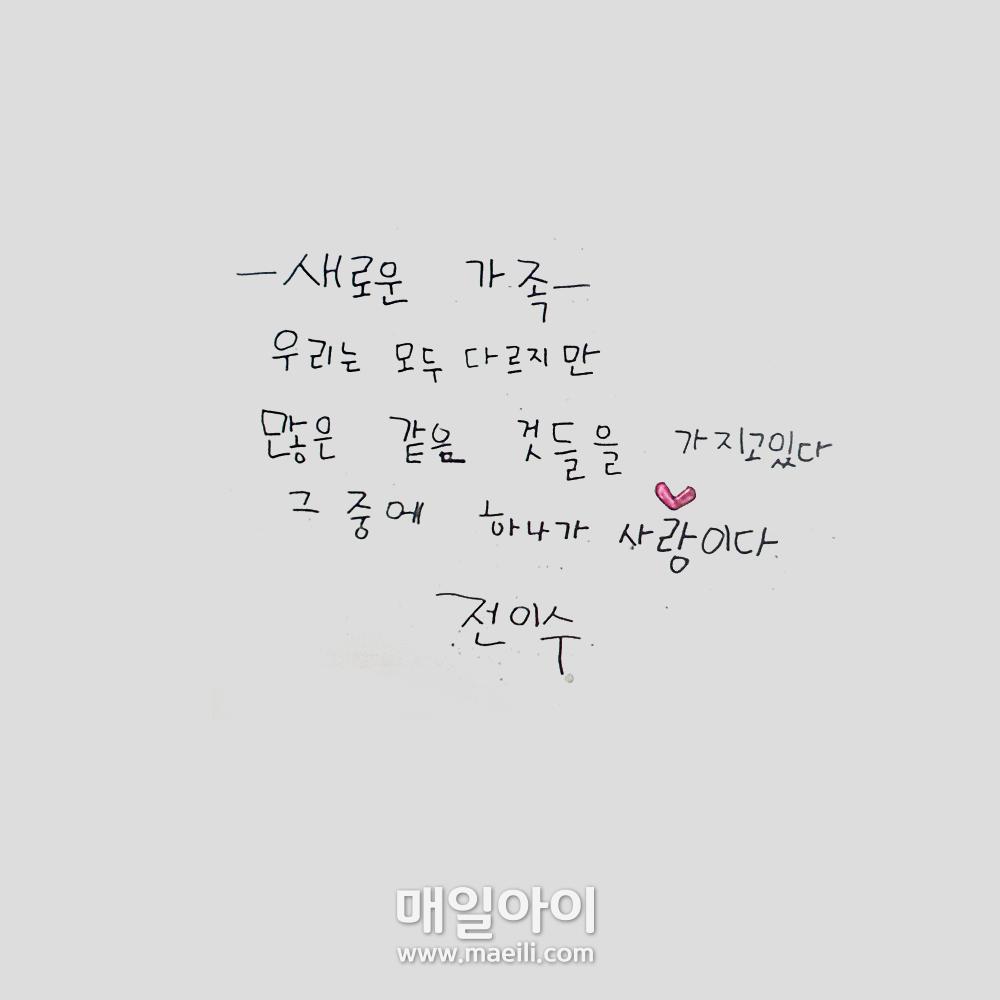 —새로운 가족—
우리는 모두 다르지만
많은 같음 것들을 가지고있다
그 중에 하나가 사랑이다
전이수
매일아이
www.maeili.com